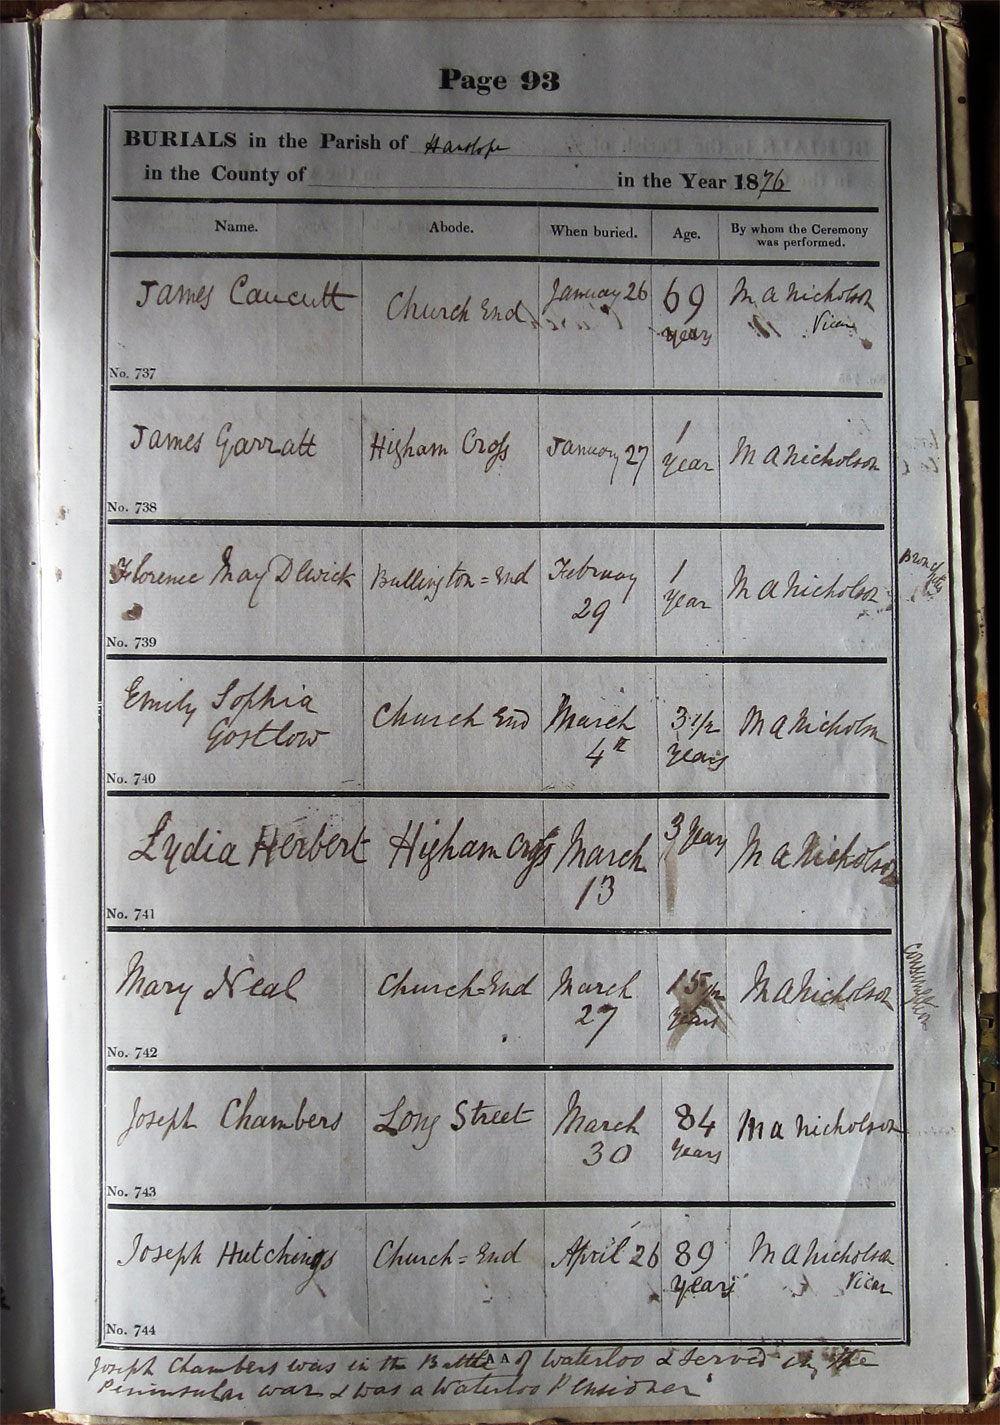 Page 93
BURIALS in the Parish of Hanslope
in the County of in the Year 1876
Name. Abode. When buried. Age. By whom the Ceremony was performed.
James Caucutt Church End January 26 69 years M A Nicholson Vicar
No. 737
James Garratt Higham Cross January 27 1 year M A Nicholson
No. 738
Florence May Bullington = End February 29 1 year M A Nicholson
No. 739
Emily Sophia Gostlow Church End March 4th 3 1/2 years M A Nicholson
No. 740
Lydia Herbert Higham Cross March 13 3 years M A Nicholson
No. 741
Mary Neal Church = End March 27 15 1/2 years M A Nicholson
consumption
No. 742
Joseph Chambers Long Street March 30 84 years M A Nicholson
No. 743
Joseph Hutchings Church = End April 26 89 years M A Nicholson Vicar
No. 744
Joseph Chambers was in the Battle of Waterloo & served in the
Peninsular war & was a Waterloo Pensioner